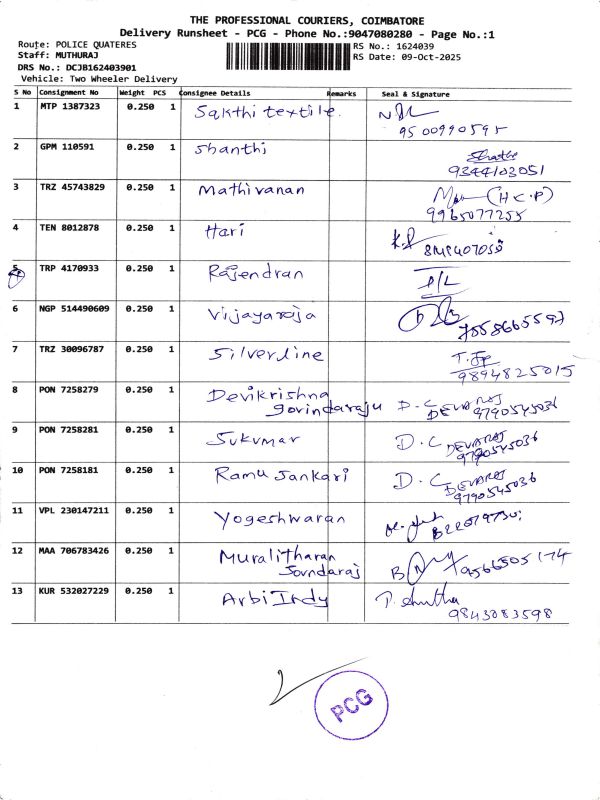 THE PROFESSIONAL COURIERS, COIMBATORE
Delivery Runsheet - PCG - Phone No.:9047080280 - Page No.:1
Route: POLICE QUATERES
RS No.: 1624039
Staff: MUTHURAJ
RS Date: 09-Oct-2025
DRS No.: DCJB162403901
Vehicle: Two Wheeler Delivery
S No Consignment No Weight PCS Consignee Details Remarks Seal & Signature
1 MTP 1387323 0.250 1 Sakthi textile.
2 GPM 110591 0.250 1 Shanthi
9344103051
3 TRZ 45743829 0.250 1 Mathivanan (H C.P)
9965077255
4 TEN 8012878 0.250 1 Hari
5 TRP 4170933 0.250 1 Rajendran
6 NGP 514490609 0.250 1 Vijayaraja
7558665597
7 TRZ 30096787 0.250 1 Silverline
9894825015
8 PON 7258279 0.250 1 Devikrishna
govindaraju D. C DEVARAJ
9790545036
9 PON 7258281 0.250 1 Sukumar D. C DEVARAJ
9790545036
10 PON 7258181 0.250 1 Ramu Sankari D. C DEVARAJ
9790545036
11 VPL 230147211 0.250 1 Yogeshwaran
12 MAA 706783426 0.250 1 Muralitharan
Soundaraj 9566505174
13 KUR 532027229 0.250 1 Arbi Indy
9843083598
PCG